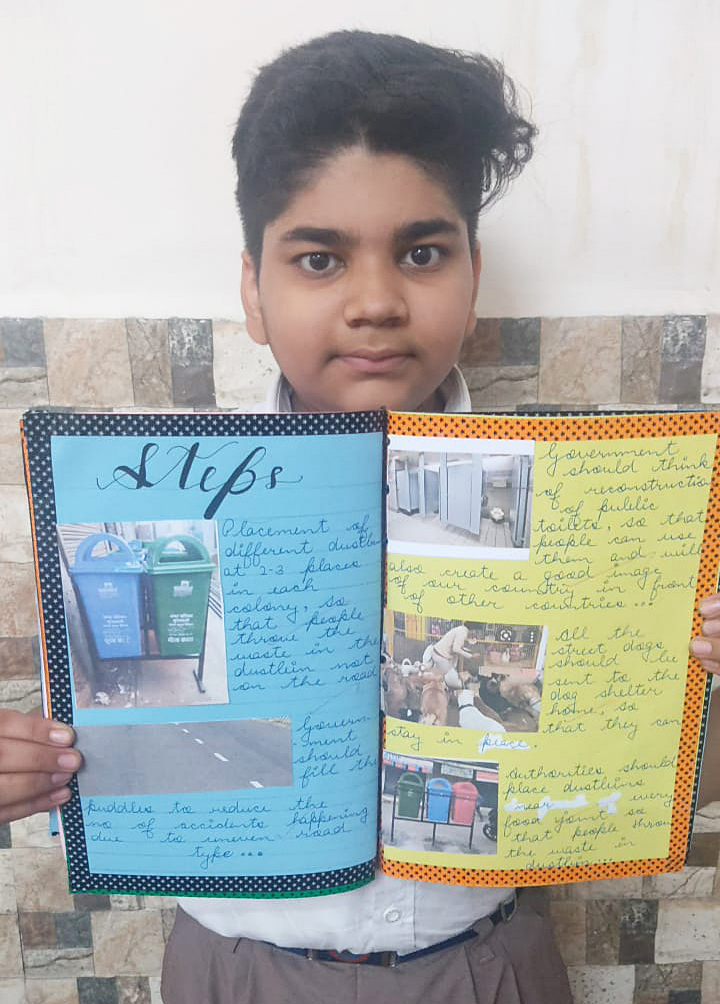 Steps
Placement of
different dustbin
at 2-3 places
in each
colony, so
that people
throw the
waste in the
dustbin not
on the road
Govern-
ment
should
fill the
puddles to reduce the
no of accidents happening
due to uneven road
type ...
Government
should think
of reconstructio
of public
toilets, so that
people can use
them and will
also create a good image
of our country in front
of other countries ...
All the
street dogs
should be
sent to the
dog shelter
home, so
that they can
stay in peace.
Authorities should
place dustbins
near every
food joint so
that people throw
the waste in
dustbins...